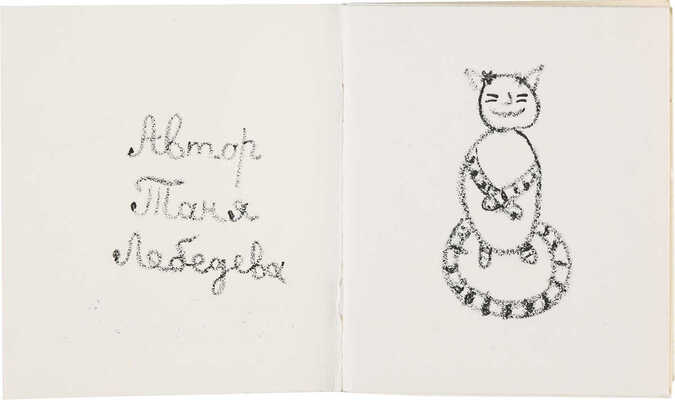 Автор
Таня
Лебедева